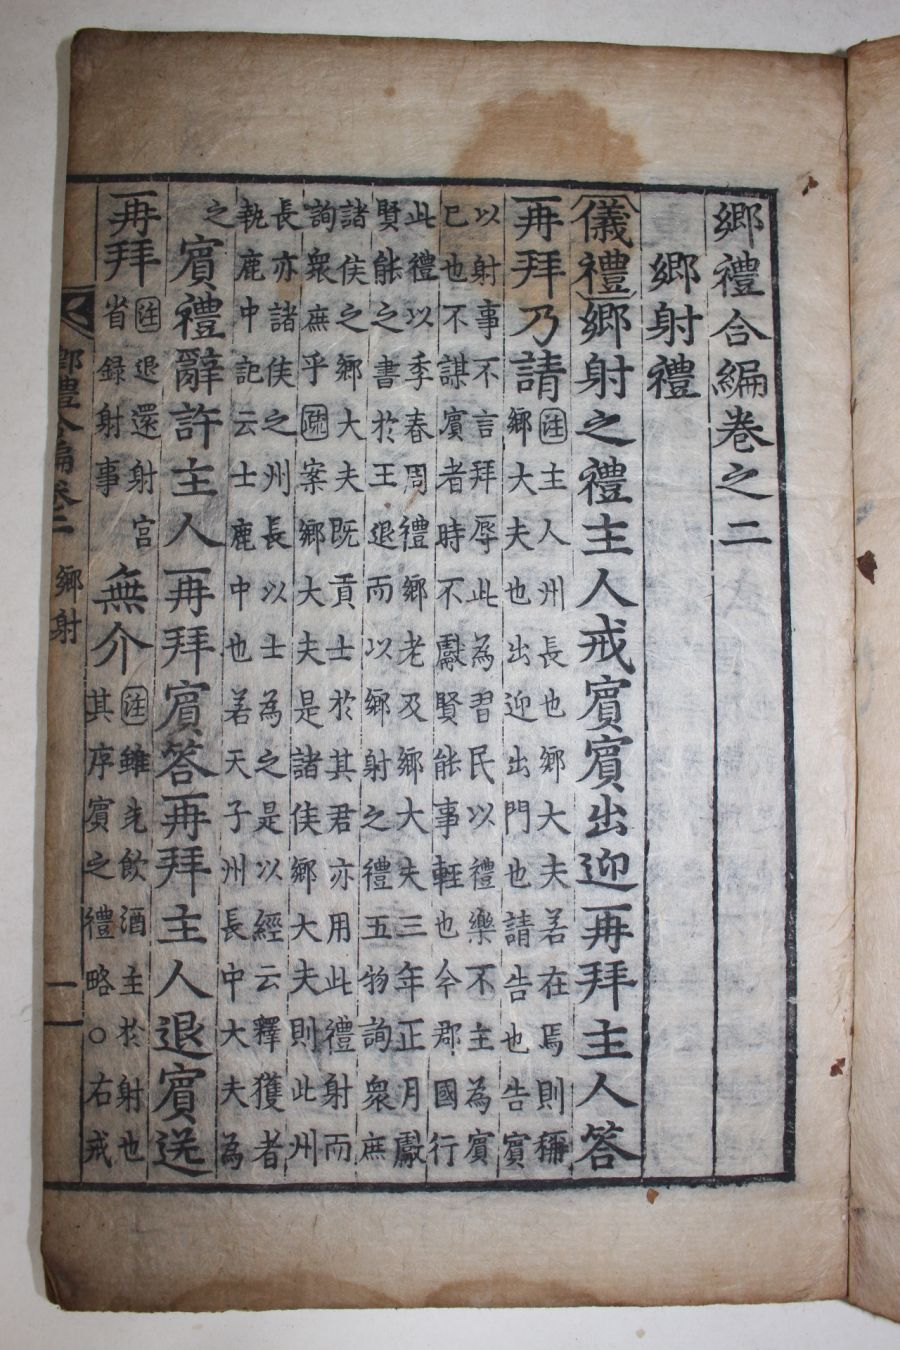 鄕禮合編卷之二
鄕射禮
儀禮鄕射之禮主人戒賓賓出迎再拜主人答
再拜乃請注主人州長也鄕大夫若在焉則稱
鄕大夫也出迎出門也請告也告賓
以射事不言拜辱此為習民以禮樂不主為賓
已也不謀賓者時不獻賢能事輕也今郡國行
此禮以季春周禮鄕老及鄕大夫三年正月獻
賢能之書於王退而以鄕射之禮五物詢衆庶
諸侯之鄕大夫旣貢士於其君亦用此禮射而
詢衆庶乎疏案鄕大夫是諸侯鄕大夫則此州
長亦諸侯之州長以士為之是以經云釋獲者
執鹿中記云士鹿中也若天子州長中大夫為
之賓禮辭許主人再拜賓答再拜主人退賓送
再拜注退還射宮省錄射事無介注雖先飮酒主於射也
其序賓之禮略○右戒
鄕禮合編卷二 鄕射 一